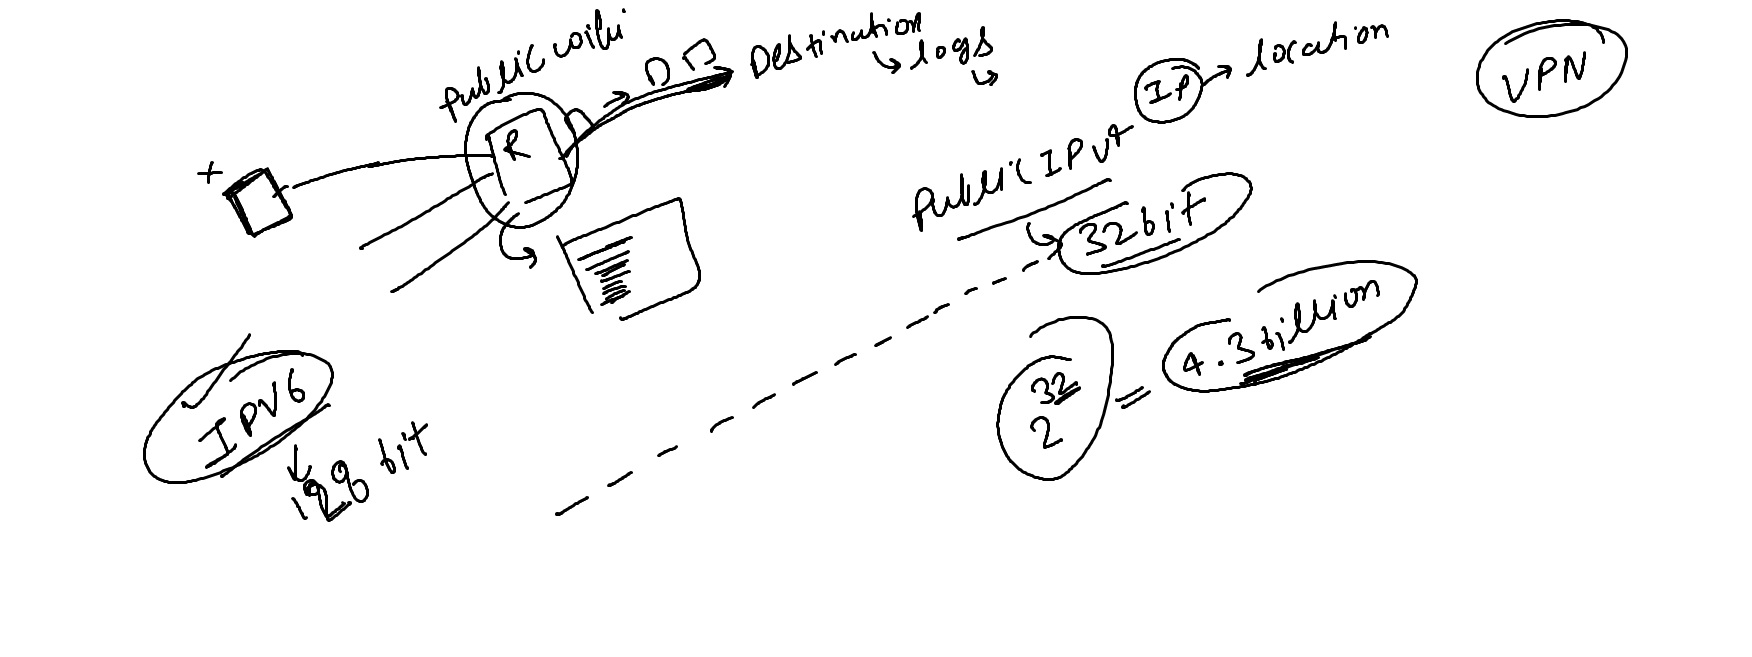 public wifi
R
Destination
logs
IP
location
VPN
Public IPv4
32bit
2^32 = 4.3 billion
IPV6
128 bit